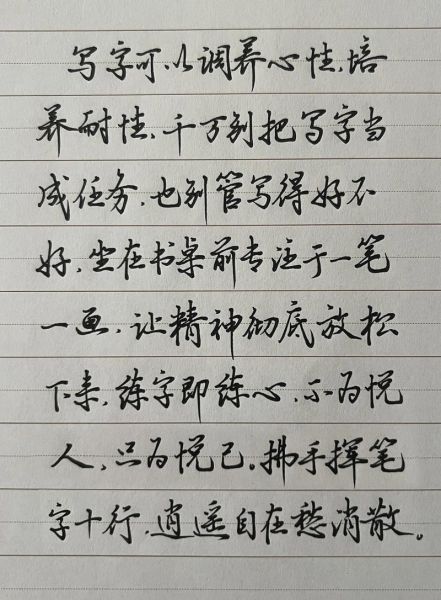 写字可以调养心性,培
养耐性,千万别把写字当
成任务,也别管写得好不
好,坐在书桌前专注于一笔
一画,让精神彻底放松
下来,练字即练心,不为悦
人,只为悦己。拂手挥笔
字十行,逍遥自在愁消散。